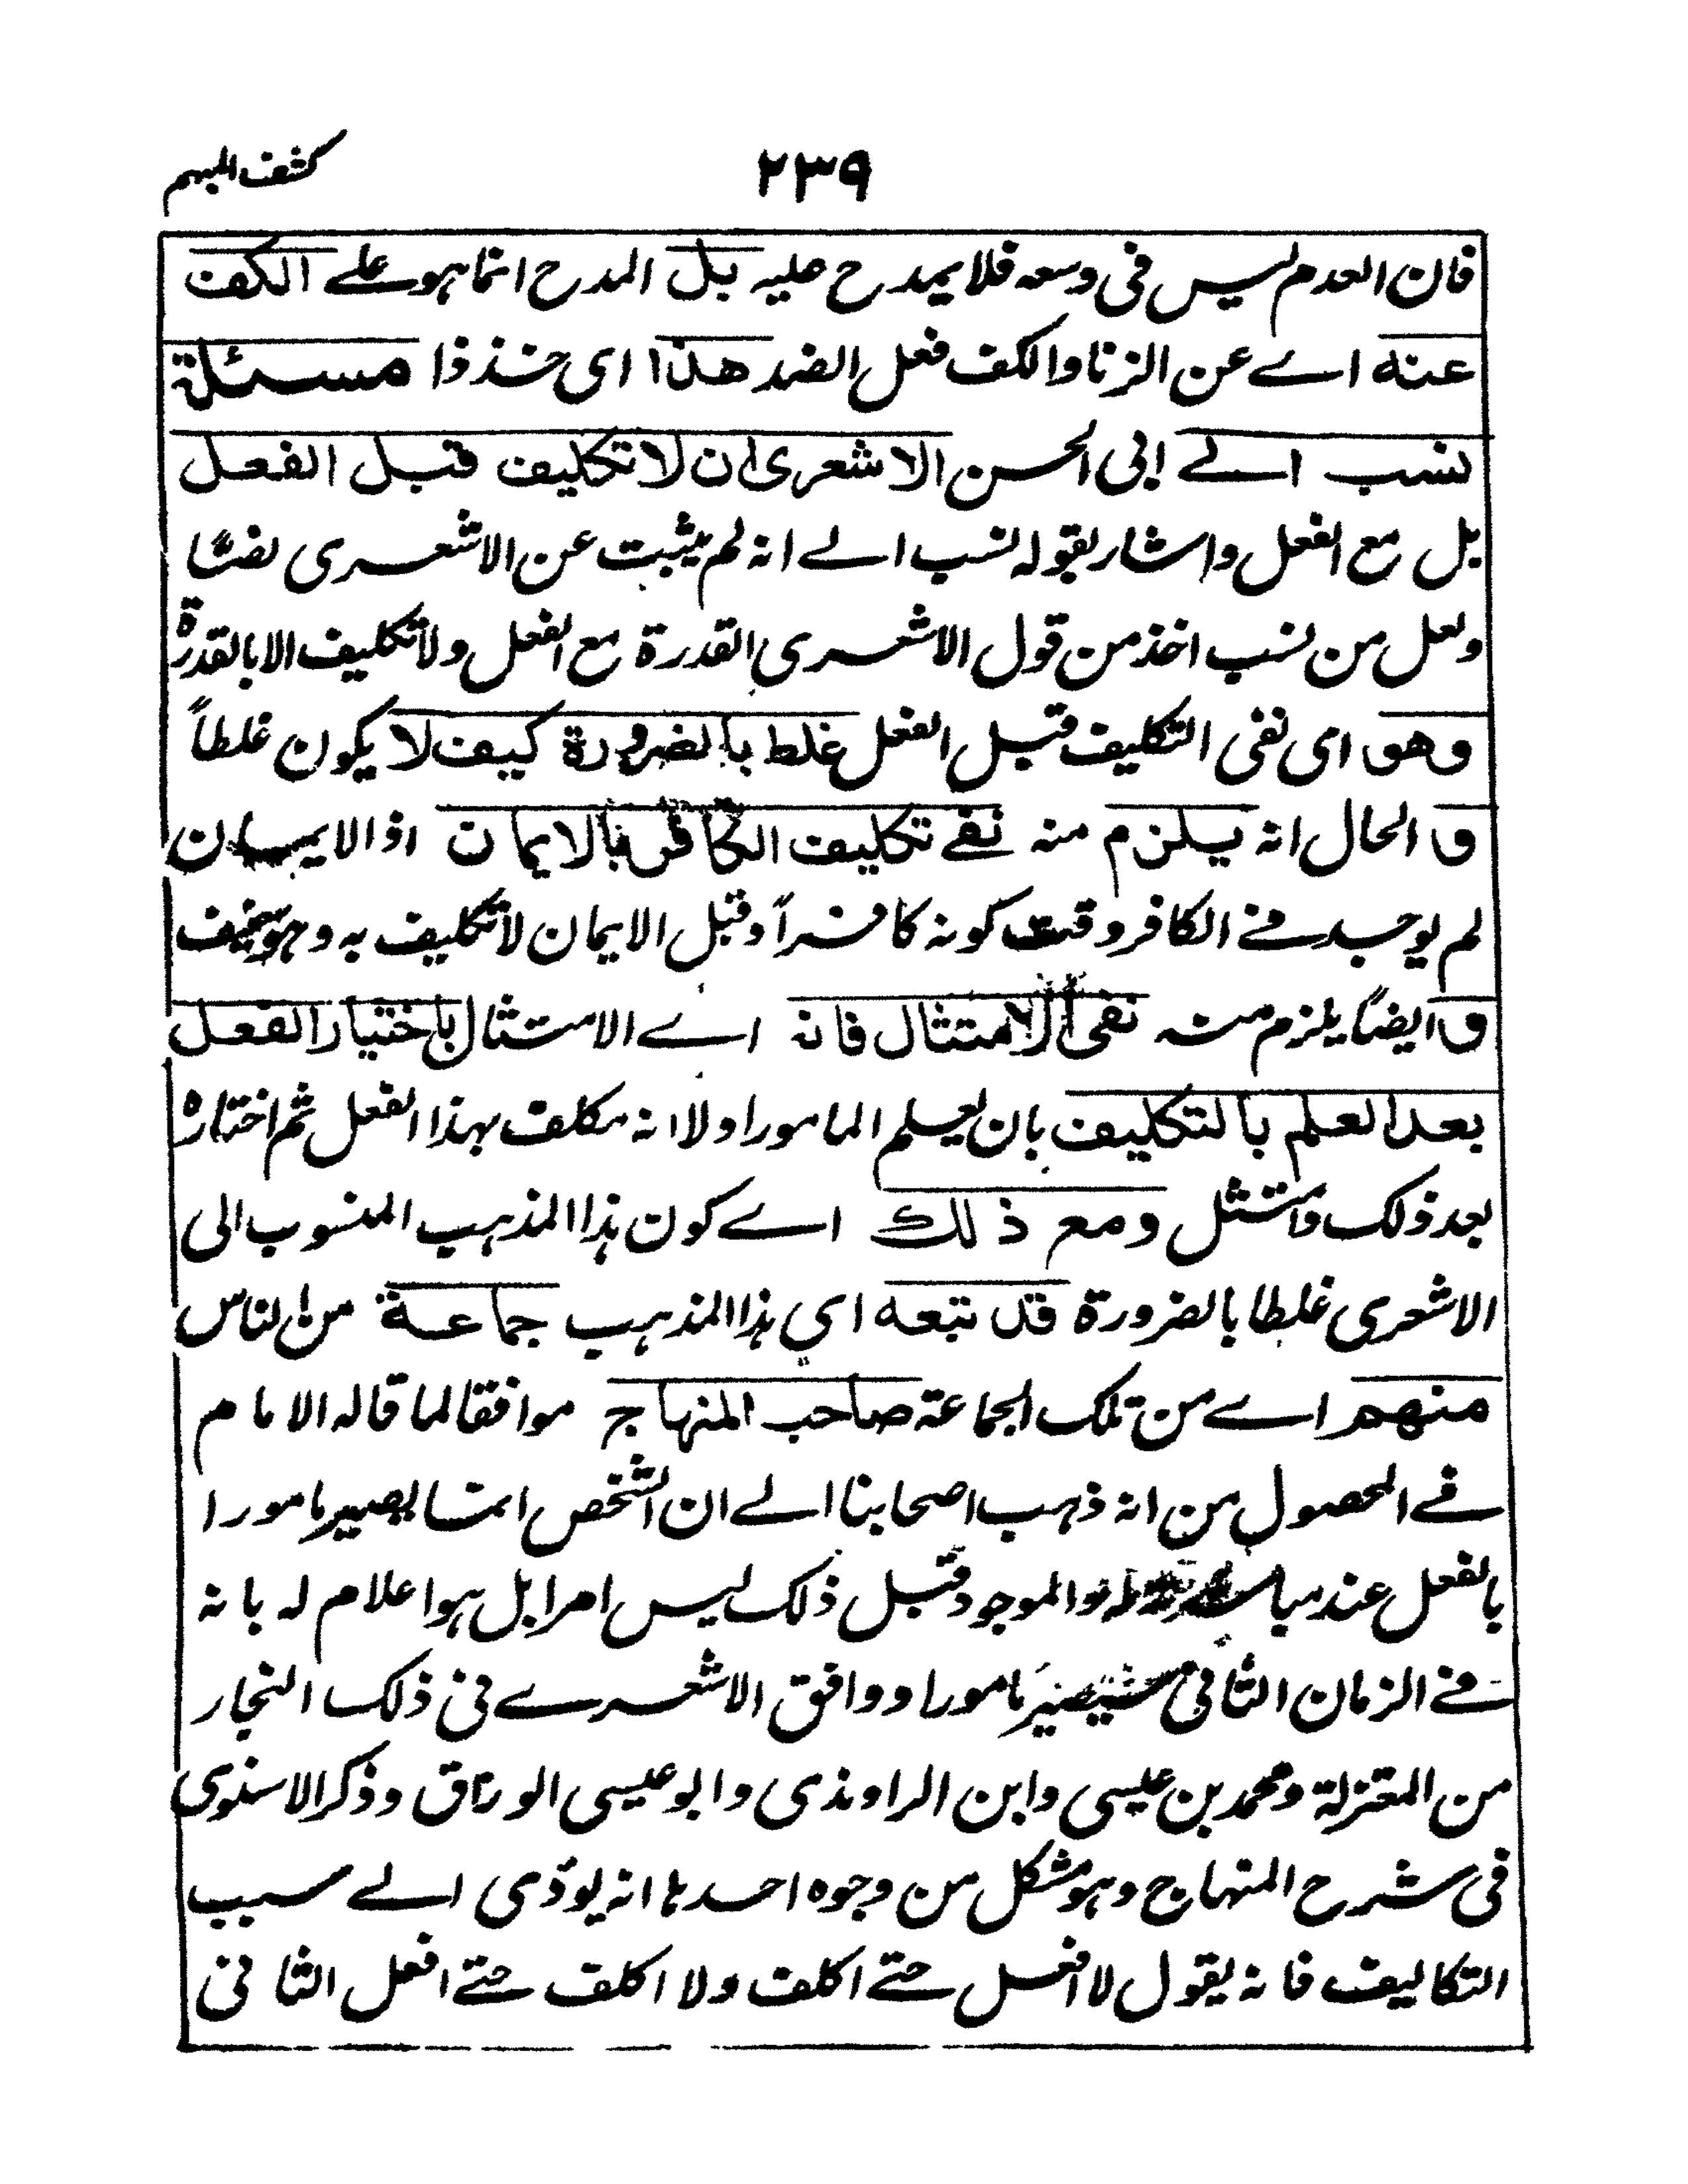 كشف المبهم
٢٣٩
فان العدم ليس فى وسعه فلا يمدح عليه بل المدح انما هو على الكف
عنه اے عن الزنا والكف فعل الضد هذا اى خذ ذا مسئلة
نسب الے ابى الحسن الاشعرى ان لا تكليف قبل الفعل
بل مع الفعل واشار بقوله نسب الے انه لم يثبت عن الاشعرى نصًا
ولعل من نسب اخذ من قول الاشعرى القدرة مع الفعل ولا تكليف الا بالقدرة
وهو اى نفى التكليف قبل الفعل غلط بالضرورة كيف لا يكون غلطاً
و الحال انه يلزم منه نفے تكليف الكافر بالايمان اذ الايمان
لم يوجد فے الكافر وقت كونه كافراً وقبل الايمان لا تكليف به وهو سخيف
و ايضًا يلزم منه نفى الامتثال فانه اے الامتثال باختيار الفعل
بعد العلم بالتكليف بان يعلم المامور اولا انه مكلف بهذا الفعل ثم اختاره
بعد ذلك وامتثل ومع ذلك اے كون هذا المذهب المنسوب الى
الاشعرى غلطا بالضرورة قد تبعه اى هذا المذهب جماعة من الناس
منهم اے من تلك الجماعة صاحب المنهاج موافقا لما قاله الامام
فے المحصول من انه ذهب اصحابنا الے ان الشخص انما يصير مامورا
بالفعل عند الموجود وقبل ذلك ليس امرا بل هو اعلام له بانه
فے الزمان الثانى سيصير مامورا ووافق الاشعرے فى ذلك النجار
من المعتزلة ومحمد بن عيسى وابن الراوندى وابو عيسى الوراق وذكر الاسنوى
فى شرح المنهاج وهو مشكل من وجوه احدها انه يؤدى الے سبب
التكاليف فانه يقول لا افعل حتے اكلف ولا اكلف حتے افعل الثانى